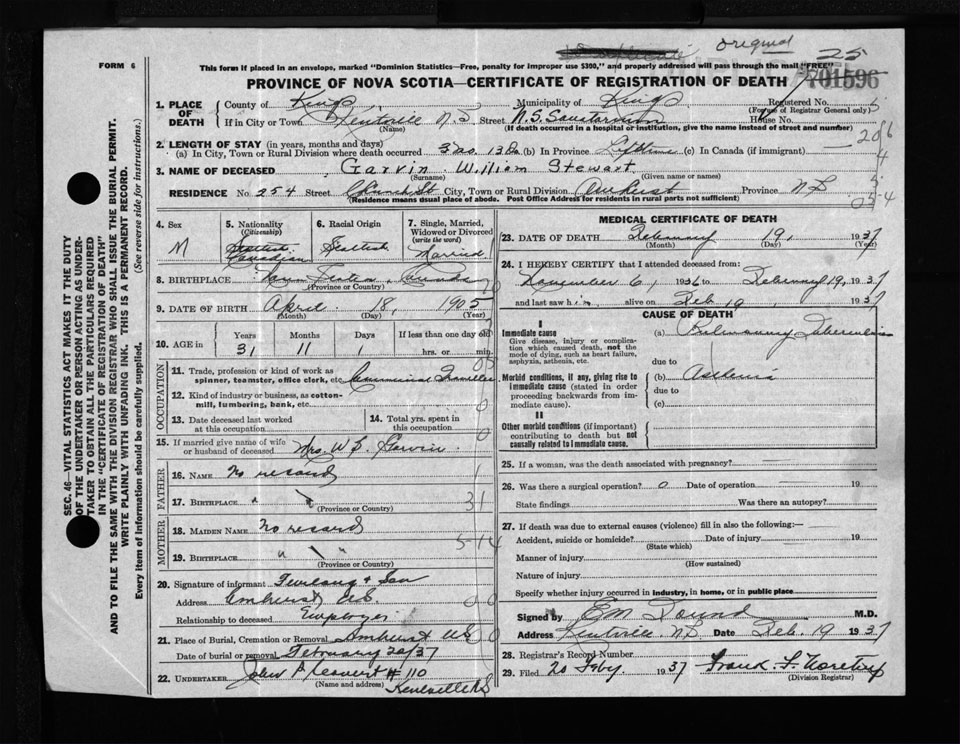 original
25
FORM 6
This form if placed in an envelope, marked "Dominion Statistics—Free, penalty for improper use $300," and properly addressed will pass through the mail "FREE"
PROVINCE OF NOVA SCOTIA—CERTIFICATE OF REGISTRATION OF DEATH
701596
1. PLACE OF DEATH
County of Kings Municipality of Kings Registered No.
(For use of Registrar General only)
If in City or Town Kentville N.S. Street N.S. Sanatorium House No.
(Name) (If death occurred in a hospital or institution, give the name instead of street and number)
2. LENGTH OF STAY (in years, months and days)
(a) In City, Town or Rural Division where death occurred 3 13 (b) In Province Lifetime (c) In Canada (if immigrant)
3. NAME OF DECEASED Garvin William Stewart
(Surname) (Given name or names)
RESIDENCE No. 254 Street Church St City, Town or Rural Division Amherst Province N.S
(Residence means usual place of abode. Post Office Address for residents in rural parts not sufficient)
4. Sex
M
5. Nationality
(Citizenship)
Canadian
6. Racial Origin
Scottish
7. Single, Married, Widowed or Divorced
(write the word)
Married
8. BIRTHPLACE Nova Scotia, Canada
(Province or Country)
9. DATE OF BIRTH April 18, 1905
(Month) (Day) (Year)
10. AGE in
Years Months Days If less than one day old
31 11 1 hrs. or min.
OCCUPATION
11. Trade, profession or kind of work as spinner, teamster, office clerk, etc. Commercial Traveller
12. Kind of industry or business, as cotton-mill, lumbering, bank, etc.
13. Date deceased last worked at this occupation
14. Total yrs. spent in this occupation
15. If married give name of wife or husband of deceased Mrs. W S. Garvin
FATHER
16. NAME No record
17. BIRTHPLACE " "
(Province or Country)
MOTHER
18. MAIDEN NAME No record
19. BIRTHPLACE " "
(Province or Country)
20. Signature of informant & Son
Address Amherst N.S.
Relationship to deceased Employer
21. Place of Burial, Cremation or Removal Amherst N.S
Date of burial or removal February 20/37
22. UNDERTAKER John 110
(Name and address) Kentville N.S
MEDICAL CERTIFICATE OF DEATH
23. DATE OF DEATH February 19, 1937
(Month) (Day) (Year)
24. I HEREBY CERTIFY that I attended deceased from:
November 6, 1936 to February 19, 1937
and last saw him alive on Feb 19, 1937
CAUSE OF DEATH
I
Immediate cause (a) Pulmonary Tuberculosis
Give disease, injury or complication which caused death, not the mode of dying, such as heart failure, asphyxia, asthenia, etc.
due to
Morbid conditions, if any, giving rise to immediate cause (stated in order proceeding backwards from immediate cause).
(b) Asthenia
due to
(c)
II
Other morbid conditions (if important) contributing to death but not causally related to immediate cause.
25. If a woman, was the death associated with pregnancy?
26. Was there a surgical operation? 0 Date of operation 19
State findings Was there an autopsy?
27. If death was due to external causes (violence) fill in also the following:—
Accident, suicide or homicide? Date of injury 19
(State which)
Manner of injury
(How sustained)
Nature of injury
Specify whether injury occurred in industry, in home, or in public place
Signed by E M Pound M.D.
Address Kentville. N.S Date Feb. 19 1937
28. Registrar's Record Number
29. Filed 20 Feby. 1937 Frank F.
(Division Registrar)
SEC. 46—VITAL STATISTICS ACT MAKES IT THE DUTY OF THE UNDERTAKER OR PERSON ACTING AS UNDERTAKER TO OBTAIN ALL THE PARTICULARS REQUIRED IN THE "CERTIFICATE OF REGISTRATION OF DEATH" AND TO FILE THE SAME WITH THE DIVISION REGISTRAR WHO SHALL ISSUE THE BURIAL PERMIT.
WRITE PLAINLY WITH UNFADING INK. THIS IS A PERMANENT RECORD.
Every item of information should be carefully supplied. (See reverse side for instructions.)